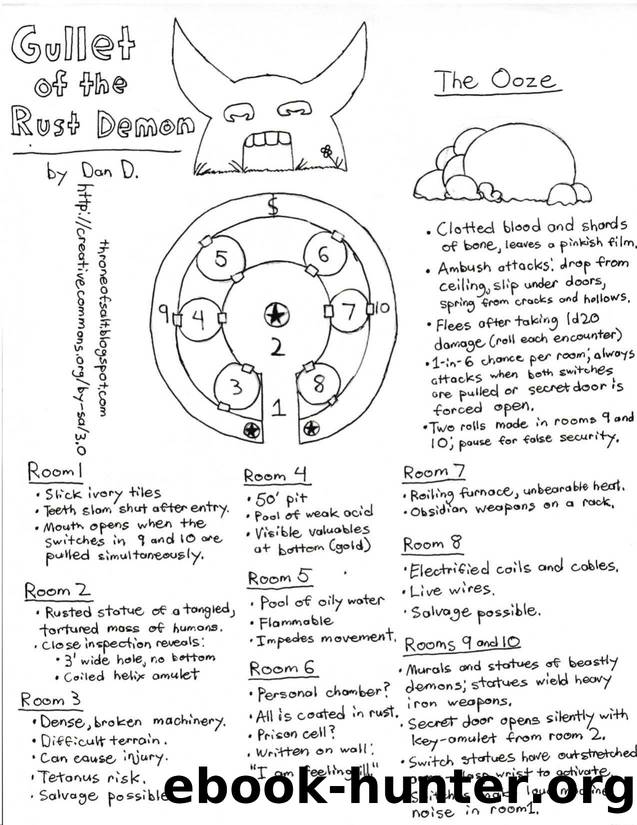 Gullet
of the
Rust Demon
by Dan D.
throneofsalt.blogspot.com
http://creativecommons.org/by-sa/3.0
$
5
6
9
4
7
10
2
3
8
1
The Ooze
• Clotted blood and shards
of bone, leaves a pinkish film.
• Ambush attacks: drop from
ceiling, slip under doors,
spring from cracks and hollows.
• Flees after taking 1d20
damage (roll each encounter)
• 1-in-6 chance per room; always
attacks when both switches
are pulled or secret door is
forced open.
• Two rolls made in rooms 9 and
10; pause for false security.
Room 1
• Slick ivory tiles
• Teeth slam shut after entry.
• Mouth opens when the
switches in 9 and 10 are
pulled simultaneously.
Room 2
• Rusted statue of a tangled,
tortured mass of humans.
• Close inspection reveals:
• 3' wide hole, no bottom
• Coiled helix amulet
Room 3
• Dense, broken machinery.
• Difficult terrain.
• Can cause injury.
• Tetanus risk.
• Salvage possible
Room 4
• 50' pit
• Pool of weak acid
• Visible valuables
at bottom (gold)
Room 5
• Pool of oily water
• Flammable
• Impedes movement.
Room 6
• Personal chamber?
• All is coated in rust.
• Prison cell?
• Written on wall:
"I am feeling ill"
Room 7
• Roiling furnace, unbearable heat.
• Obsidian weapons on a rack.
Room 8
• Electrified coils and cables.
• Live wires.
• Salvage possible.
Rooms 9 and 10
• Murals and statues of beastly
demons; statues wield heavy
iron weapons.
• Secret door opens silently with
key-amulet from room 2.
• Switch statues have outstretched
wrist to activate
noise in room 1.
ebook-hunter.org